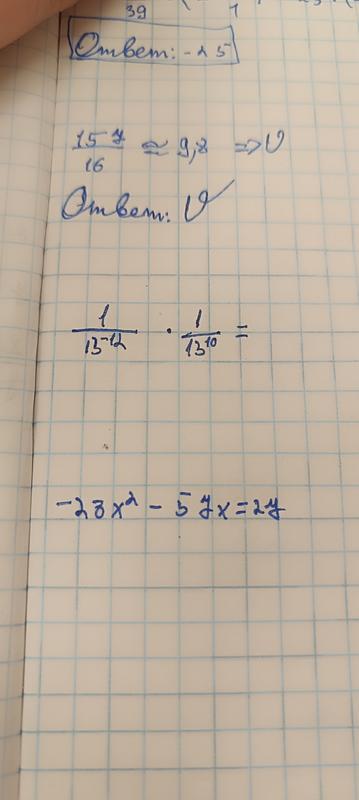 39 1
Ответ: -25
157/16 ≈ 9,8 => V
Ответ: V
1/13⁻¹² · 1/13¹⁰ =
-28x² - 57x = 27